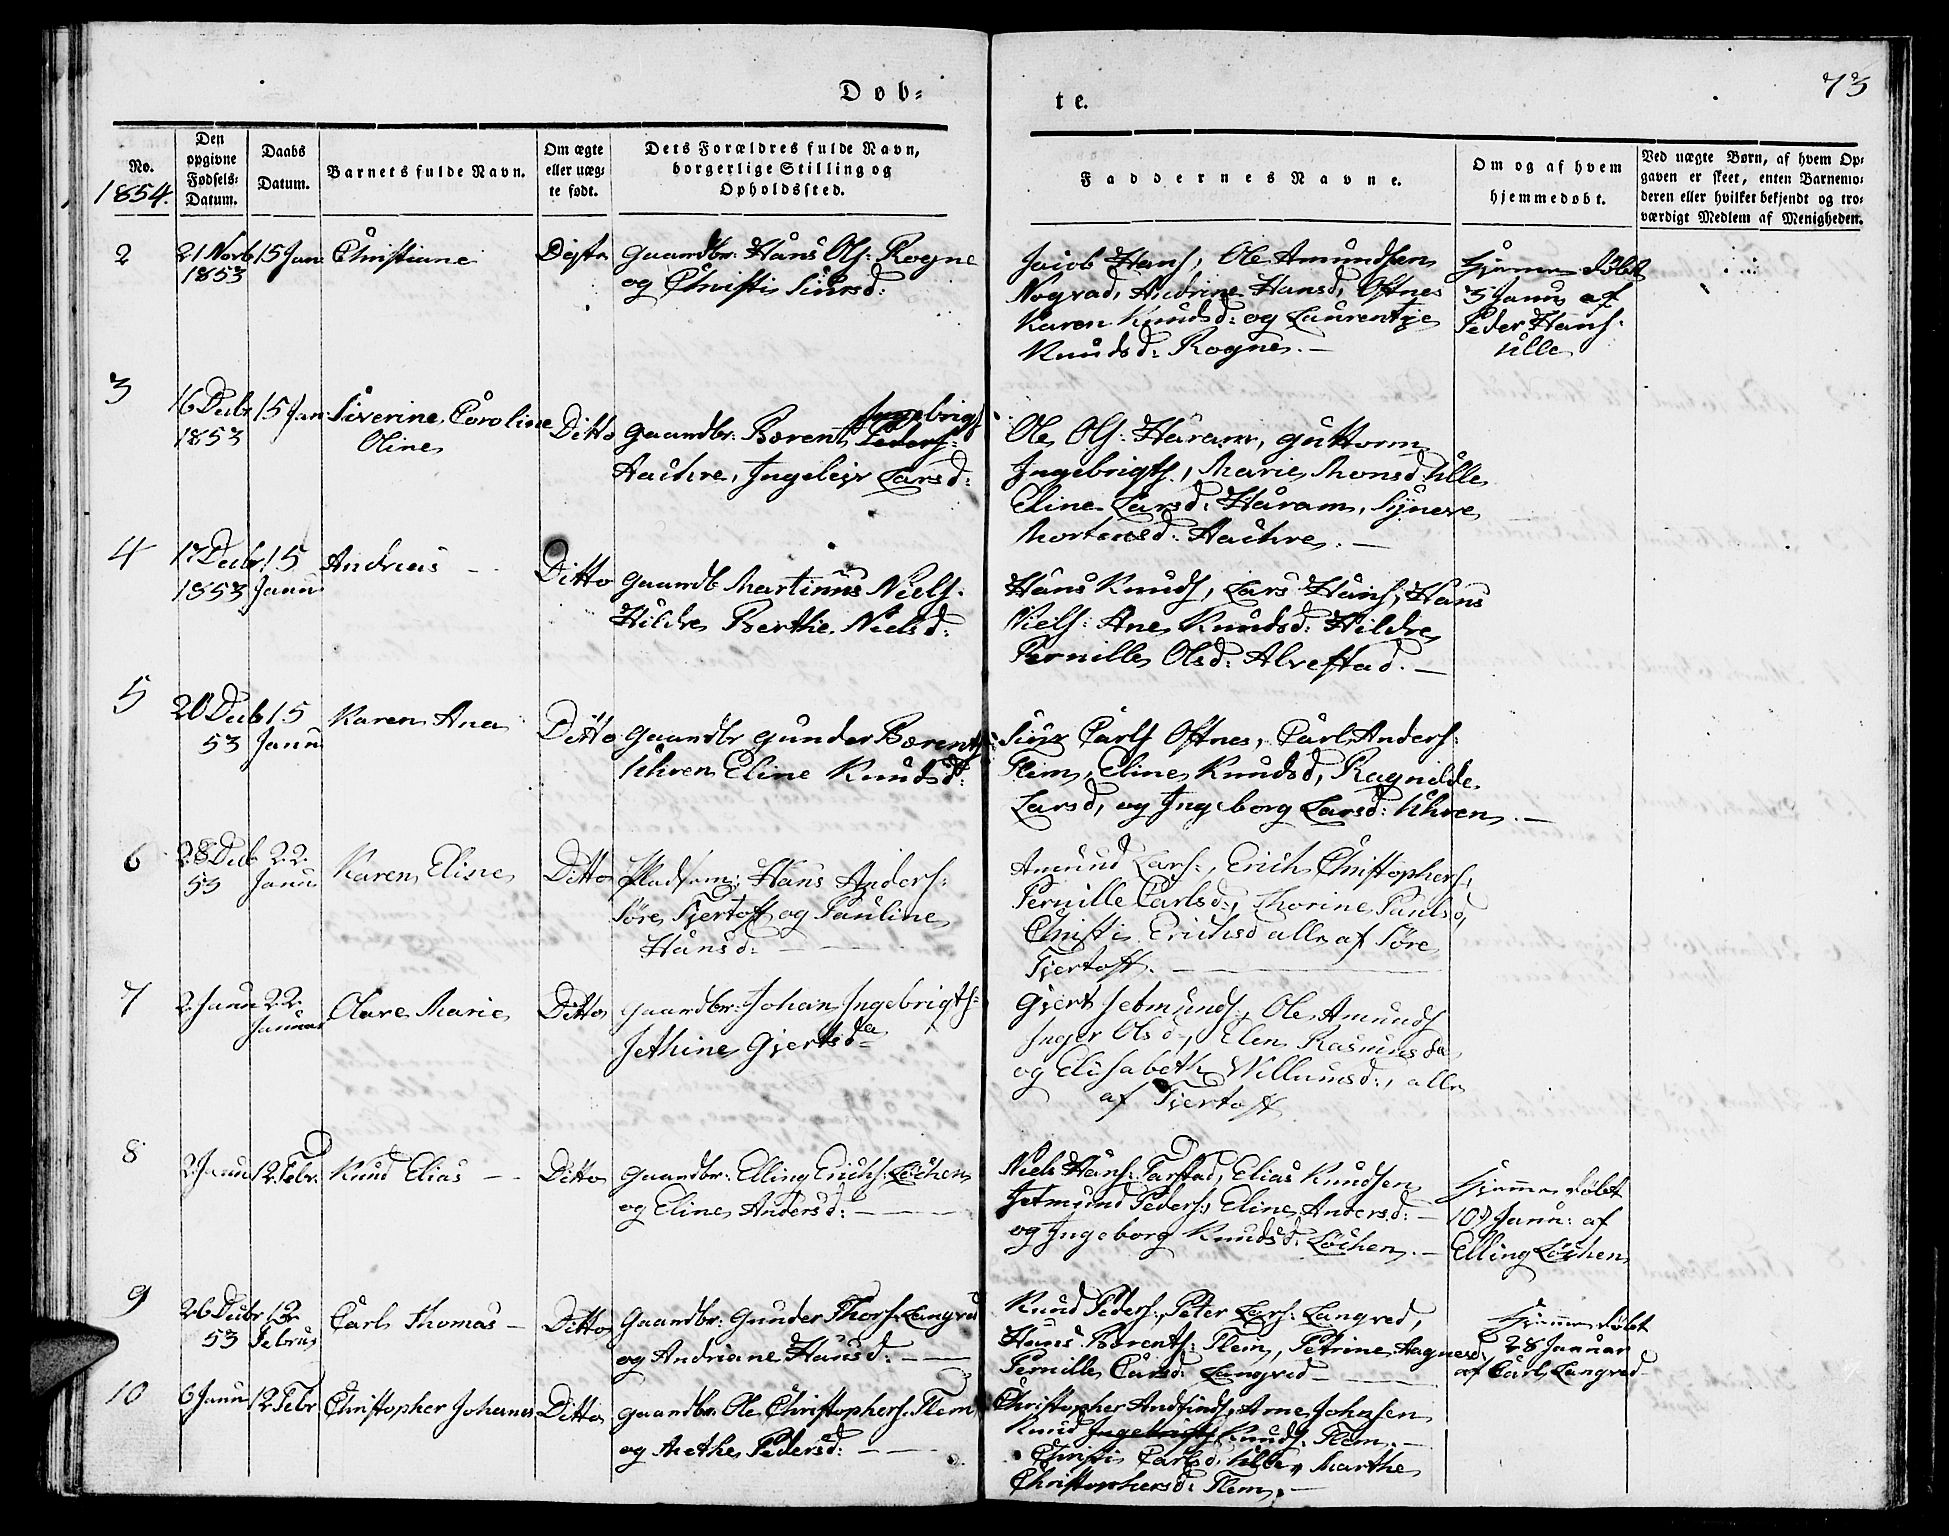 73
Døb-
te.
No.
1854.
Den opgivne Fødsels-Datum.
Daabs Datum.
Barnets fulde Navn.
Om ægte eller uæg-te født.
Dets Forældres fulde Navn, borgerlige Stilling og Opholdssted.
Faddernes Navne.
Om og af hvem hjemmedøbt.
Ved uægte Børn, af hvem Op-gaven er skeet, enten Barnemo-deren eller hvilket bekjendt og tro-værdigt Medlem af Menigheden.
2
21 Novb 15 Jan Christiane
1853
Gaardbr: Hans Ols: Rogne
og Christi Siursd:
Jacob Hans, Ole Amundsen
Nogvad, Andrine Hansd, Oftnes
Karen Knudsd: og Laurentze
Knudsd: Rogne. —
Hjemme døbt
3 Janu af
Peder Hans:
Ulle
3
16 Decbr 15 Jan Siverine Caroline
1853 Oline
Ditto Gaardbr: Berent Peders: Ingebrigts
Hachre, Ingeleiv Larsd:
Ole Ols: Haram, Guttorm
Ingebrigts, Marie Monsd Ulle
Eline Larsd: Haram, Synere
Mortensd: Hachre. —
4
17 Decbr 15 Andreas —
1853 Janu
Ditto Gaardb Martinus Niels.
Hildre Berthe Nielsd:
Hans Knuds, Lars Hans, Hans
Niels: Ane Knudsd: Hildre
Pernille Olsd: Alvestad. —
5
20 Decb 15 Karen Ana
53 Janu
Ditto Gaardbr Gunder Berents:
Uhren Eline Knudsd:
Siur Carls Oftnes, Carl Anders:
Flem, Eline Knudsd, Ragnilde
Larsd, og Ingeborg Larsd: Uhren. —
6
28 Decb 22 Karen Eline
53 Janu
Ditto Pladsm: Hans Anders:
Søre Fjertoft og Pauline
Hansd: —
Amund Lars:, Erich Christophers,
Pernille Carlsd:, Thorine Paulsd,
Christi Erichsd alle af Søre
Fjertoft. —
7
2 Janu 22 Olave Marie
Januar
Ditto Gaardbr: Johan Ingebrigts:
Jethine Gjertsda
Gjert Jetmunds, Ole Amunds
Inger Olsd, Elen Rasmusda,
og Elisabeth Willumsd:, alle
af Fjertoft
8
2 Janu 12 Febr. Knud Elias —
Ditto Gaardbr: Elling Erichs: Løchen
og Eline Andersd: —
Niels Hans: Farstad, Elias Knudsen
Jetmund Peders:, Eline Andersd: —
og Ingeborg Knudsd: Løchen. —
Hjemme døbt
10 Janu: af
Elling Løchen
9
26 Decbr 12 Carl Thomas —
53 Februa
Ditto Gaardbr: Gunder Thors: Langved
og Andriane Hansd: —
Knud Peders:, Peter Lars: Langved,
Hans Berents: Flem, Petrine Hagnesd,
Pernille Carsd: Langved —
Hjemme døbt
28 Januar
af Carl Langved
10
6 Janu 12 Febr Christopher Johannes
Ditto Gaardbr. Ole Christophers. Flem
og Anethe Pedersd: —
Christopher Andfinds, Arne Johnsen
Knud Ingebrigts Knuds. Flem. —
Christi Carlsd, Ulle, Marthe
Christophersd: Flem. —